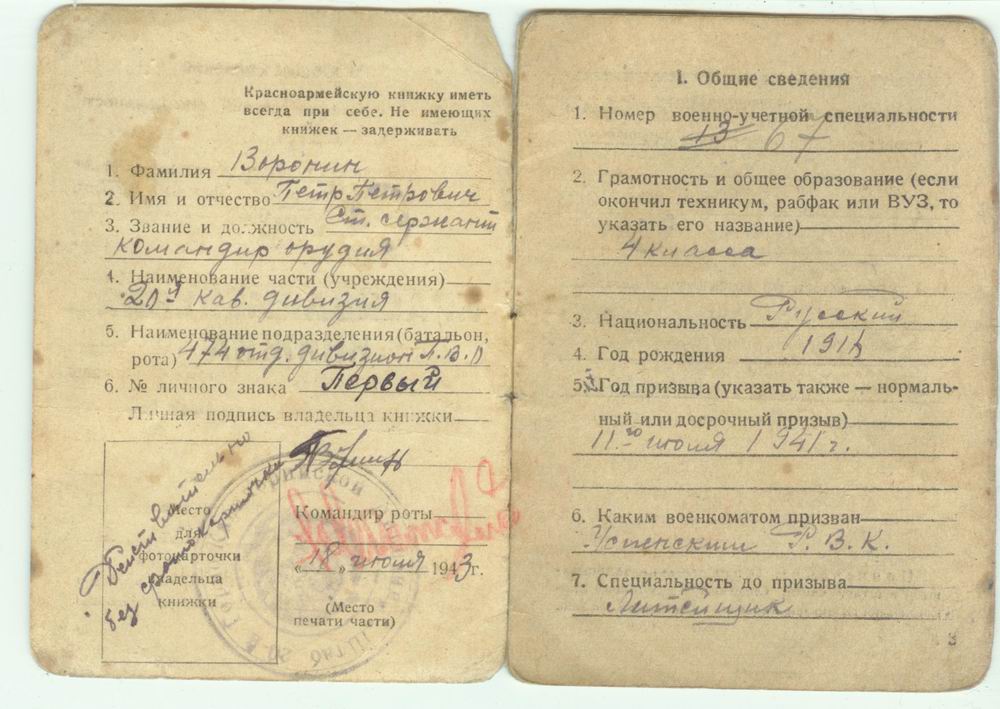 Красноармейскую книжку иметь
всегда при себе. Не имеющих
книжек — задерживать
1. Фамилия Воронин
2. Имя и отчество Петр Петрович
3. Звание и должность Ст. сержант
командир орудия
4. Наименование части (учреждения)
20й кав. дивизия
5. Наименование подразделения (батальон,
рота) 474 отд. дивизион П.В.О
6. № личного знака Первый
Личная подпись владельца книжки
Место
для
фотокарточки
владельца
книжки
Действительно
без фотокарточки
Командир роты
„18" июля 1943г.
(Место
печати части)
Штаб 20
I. Общие сведения
1. Номер военно-учетной специальности
13 67
2. Грамотность и общее образование (если
окончил техникум, рабфак или ВУЗ, то
указать его название)
4 класса
3. Национальность Русский
4. Год рождения
5. Год призыва (указать также — нормаль-
ный или досрочный призыв)
11го июля 1941г.
6. Каким военкоматом призван
Успенским Р.В.К.
7. Специальность до призыва
Литейщик
3